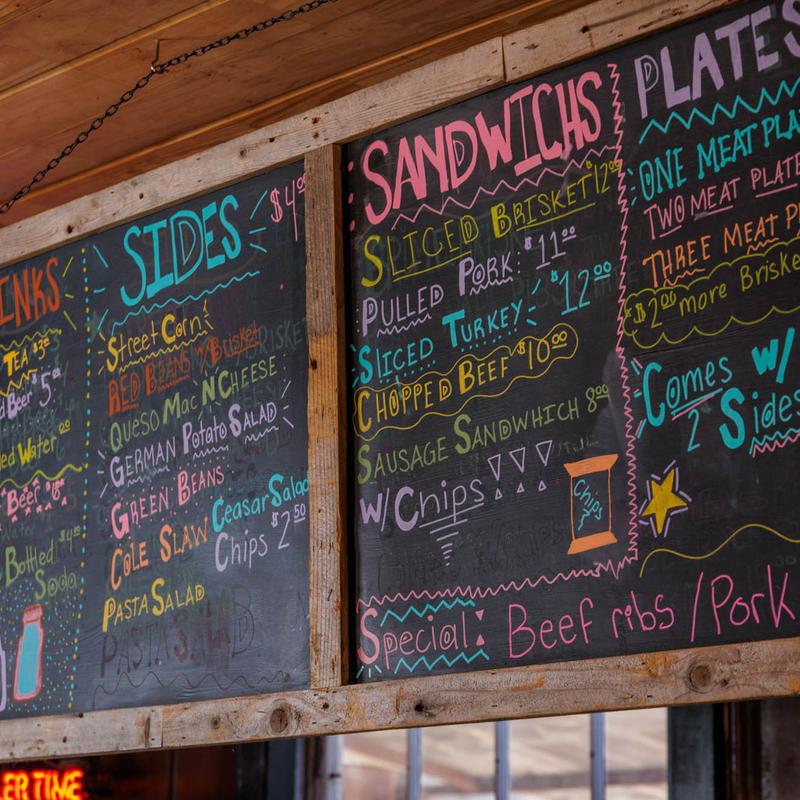 INKS
TEA $3
Beer $5
ed Water
Beer
Bottled $4
Soda
SIDES $4
Street Corn
RED BEANS w/ Brisket
QUESO MAC NCHEESE
GERMAN Potato SALAD
GREEN BEANS
Ceasar Salad
COLE SLAW
Chips $2.50
PASTA SALAD
SANDWICHS
SLICED BRISKET $12.00
PULLED PORK: $11.00
SLICED TURKEY $12.00
CHOPPED BEEF $10.00
SAUSAGE SANDWHICH 8.00
W/Chips!!!
Chips
Special: Beef ribs / Pork
PLATES
ONE MEAT PLA
TWO MEAT PLATE
THREE MEAT P
$2.00 more Briske
Comes w/
2 Sides
ER TIME